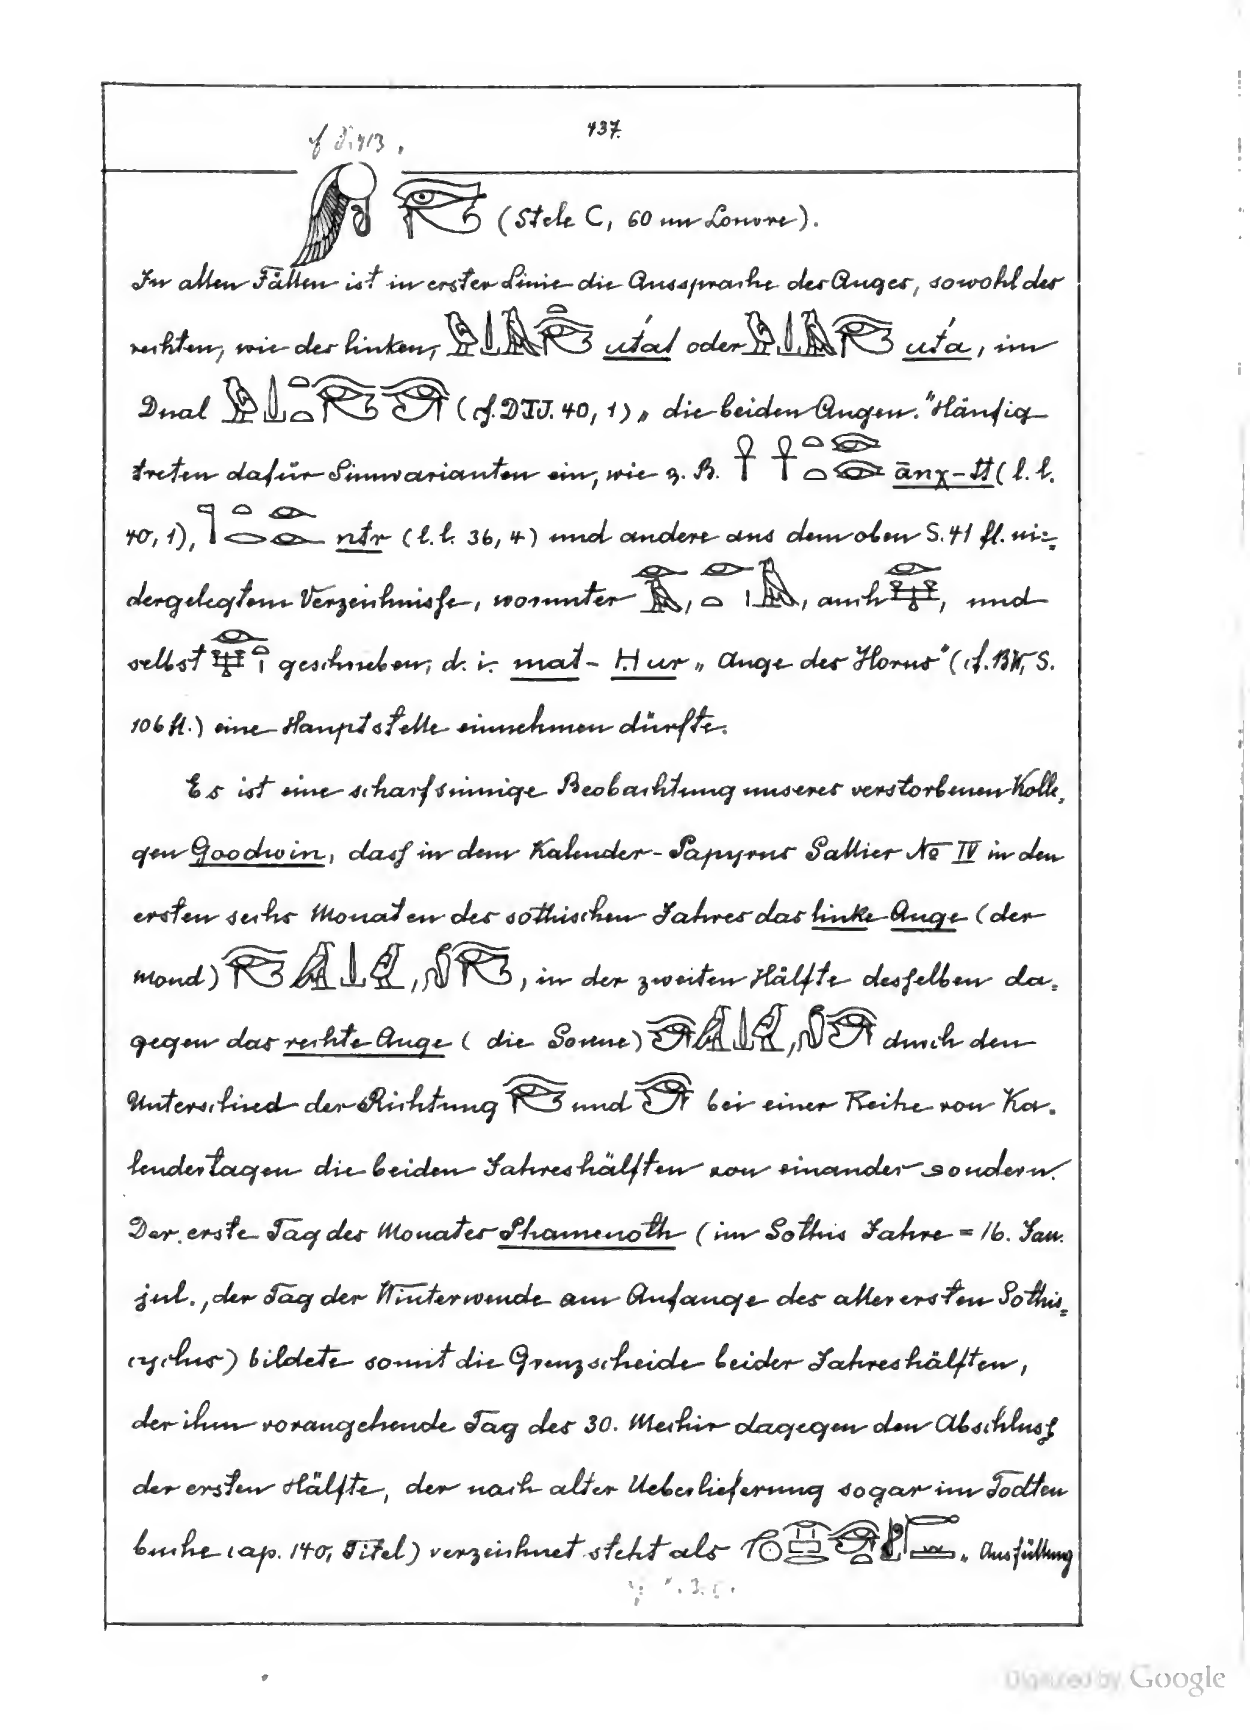 437.
(Stele C, 60 im Louvre).
In allen Fällen ist in erster Linie die Aussprache des Auges, sowohl des
rechten, wie des linken, utat oder uta, im
Dual (cf. DTJ. 40, 1) „die beiden Augen." Häufig
treten dafür Sinnvarianten ein, wie z. B. ānχ-tt (l. l.
40, 1), ntr (l. l. 36, 4) und andere aus dem oben S. 41 fl. nie=
dergelegtem Verzeichnisse, worunter , , auch , und
selbst geschrieben, d. i. mat-Hur „Auge des Horus" (cf. BW, S.
106 fl.) eine Hauptstelle einnehmen dürfte.
Es ist eine scharfsinnige Beobachtung unseres verstorbenen Kolle=
gen Goodwin, dass in dem Kalender-Papyrus Sallier No IV in den
ersten sechs Monaten des sothischen Jahres das linke Auge (der
Mond) , , in der zweiten Hälfte desselben da=
gegen das rechte Auge (die Sonne) , durch den
Unterschied der Richtung und bei einer Reihe von Ka=
lendertagen die beiden Jahreshälften von einander sondern.
Der erste Tag des Monates Phamenoth (im Sothis Jahre = 16. Jan.
jul., der Tag der Winterwende am Anfange des allerersten Sothis=
cyclus) bildete somit die Grenzscheide beider Jahreshälften,
der ihm vorangehende Tag des 30. Mechir dagegen den Abschluss
der ersten Hälfte, der nach alter Ueberlieferung sogar im Todten
buche cap. 140, Titel) verzeichnet steht als „Ausfüllung
Digitized by Google